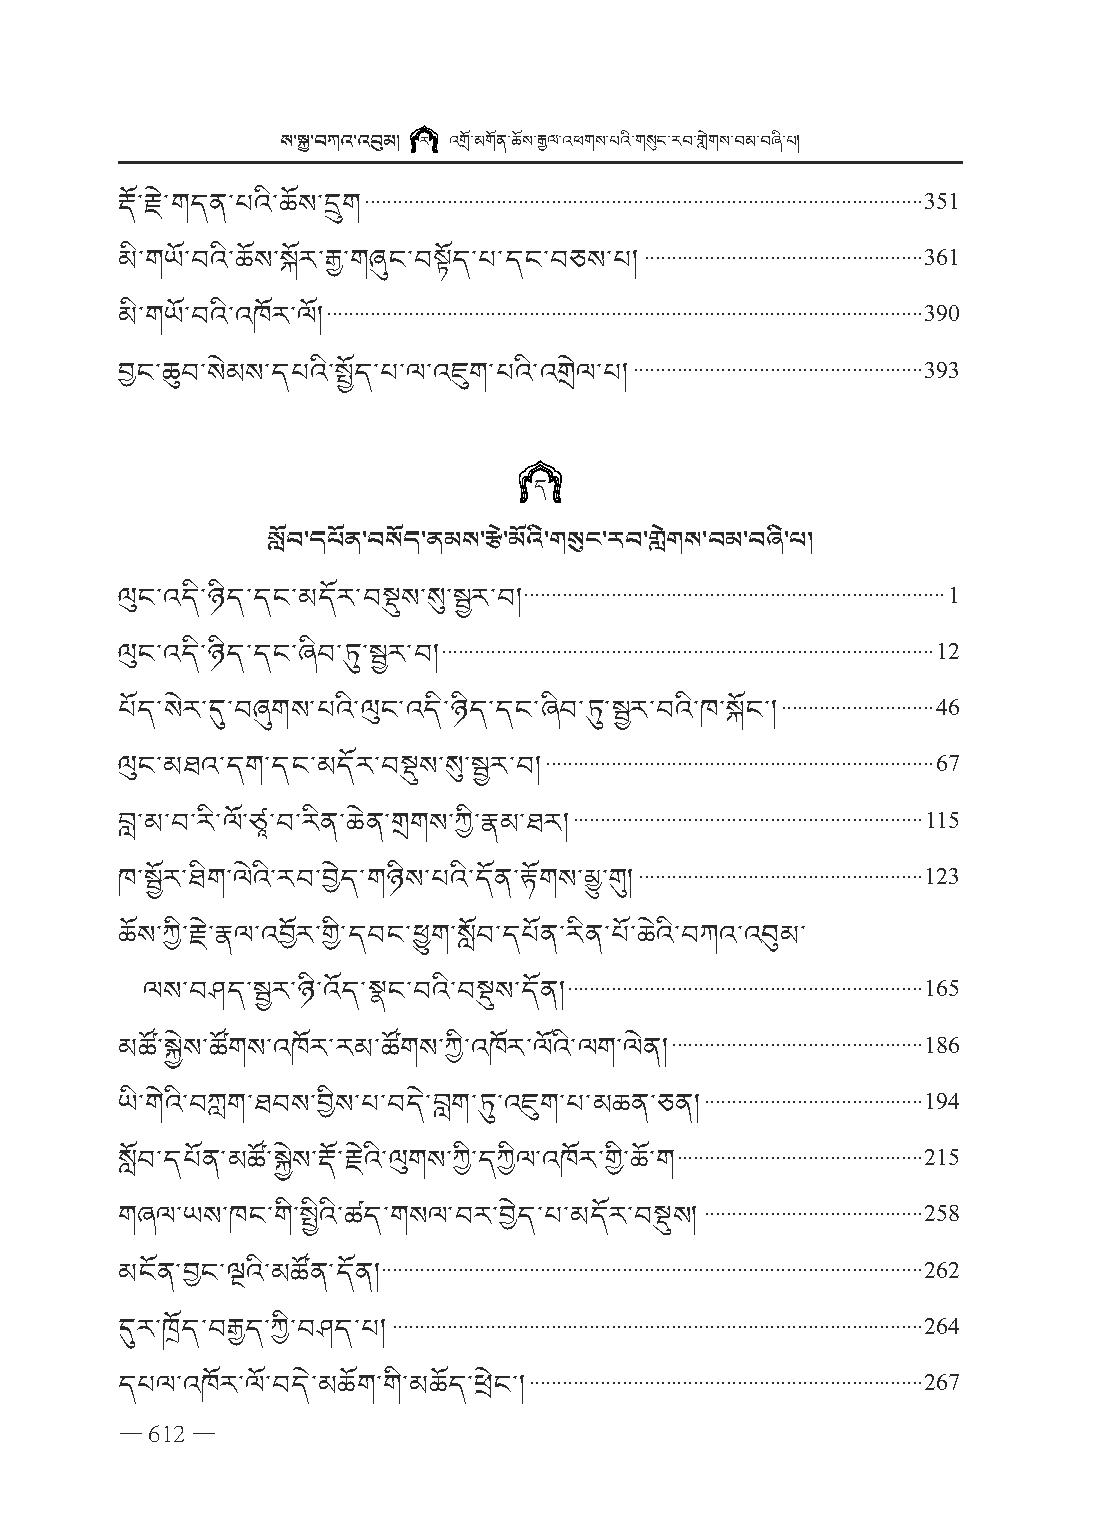 ས་སྐྱ་བཀའ་འབུམ། ར འགྲོ་མགོན་ཆོས་རྒྱལ་འཕགས་པའི་གསུང་རབ་གླེགས་བམ་བཞི་པ།
རྡོ་རྗེ་གདན་པའི་ཆོས་དྲུག 351
མི་གཡོ་བའི་ཆོས་སྐོར་རྒྱ་གཞུང་བསྟོད་པ་དང་བཅས་པ། 361
མི་གཡོ་བའི་འཁོར་ལོ། 390
བྱང་ཆུབ་སེམས་དཔའི་སྤྱོད་པ་ལ་འཇུག་པའི་འགྲེལ་པ། 393
ད
སློབ་དཔོན་བསོད་ནམས་རྩེ་མོའི་གསུང་རབ་གླེགས་བམ་བཞི་པ།
ལུང་འདི་ཉིད་དང་མདོར་བསྡུས་སུ་སྦྱར་བ། 1
ལུང་འདི་ཉིད་དང་ཞིབ་ཏུ་སྦྱར་བ། 12
པོད་སེར་དུ་བཞུགས་པའི་ལུང་འདི་ཉིད་དང་ཞིབ་ཏུ་སྦྱར་བའི་ཁ་སྐོང་། 46
ལུང་མཐའ་དག་དང་མདོར་བསྡུས་སུ་སྦྱར་བ། 67
བླ་མ་བ་རི་ལོ་ཙཱ་བ་རིན་ཆེན་གྲགས་ཀྱི་རྣམ་ཐར། 115
ཁ་སྦྱོར་ཐིག་ལེའི་རབ་བྱེད་གཉིས་པའི་དོན་རྟོགས་མྱུ་གུ། 123
ཆོས་ཀྱི་རྗེ་རྣལ་འབྱོར་གྱི་དབང་ཕྱུག་སློབ་དཔོན་རིན་པོ་ཆེའི་བཀའ་འབུམ་
ལས་བཤད་སྦྱར་ཉི་འོད་སྣང་བའི་བསྡུས་དོན། 165
མཚོ་སྐྱེས་ཚོགས་འཁོར་རམ་ཚོགས་ཀྱི་འཁོར་ལོའི་ལག་ལེན། 186
ཡི་གེའི་བཀླག་ཐབས་བྱིས་པ་བདེ་བླག་ཏུ་འཇུག་པ་མཆན་ཅན། 194
སློབ་དཔོན་མཚོ་སྐྱེས་རྡོ་རྗེའི་ལུགས་ཀྱི་དཀྱིལ་འཁོར་གྱི་ཆོ་ག 215
གཞལ་ཡས་ཁང་གི་སྤྱིའི་ཚད་གསལ་བར་བྱེད་པ་མདོར་བསྡུས། 258
མངོན་བྱང་ལྔའི་མཚོན་དོན། 262
དུར་ཁྲོད་བརྒྱད་ཀྱི་བཤད་པ། 264
དཔལ་འཁོར་ལོ་བདེ་མཆོག་གི་མཆོད་ཕྲེང་། 267
— 612 —